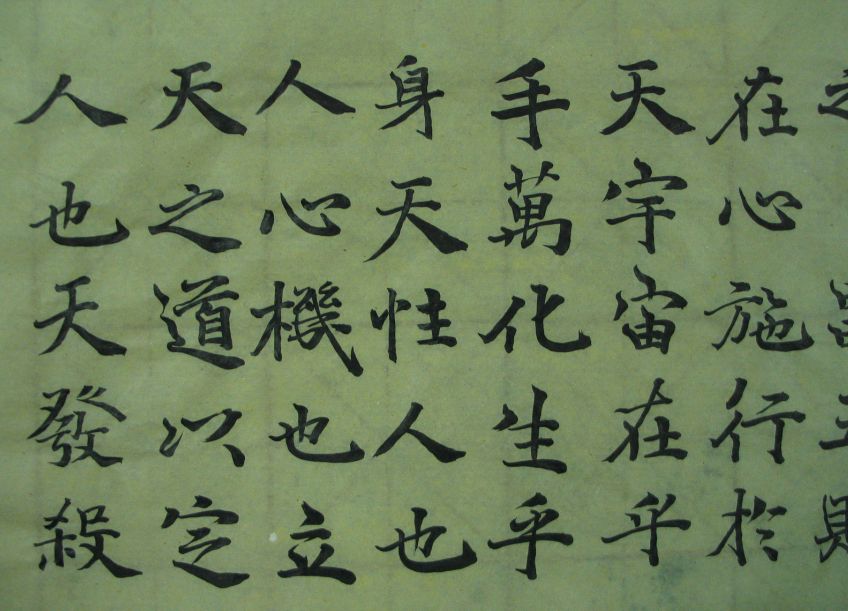 在心施行於
天宇宙在乎
手萬化生乎
身天性人也
人心機也立
天之道以定
人也天發殺